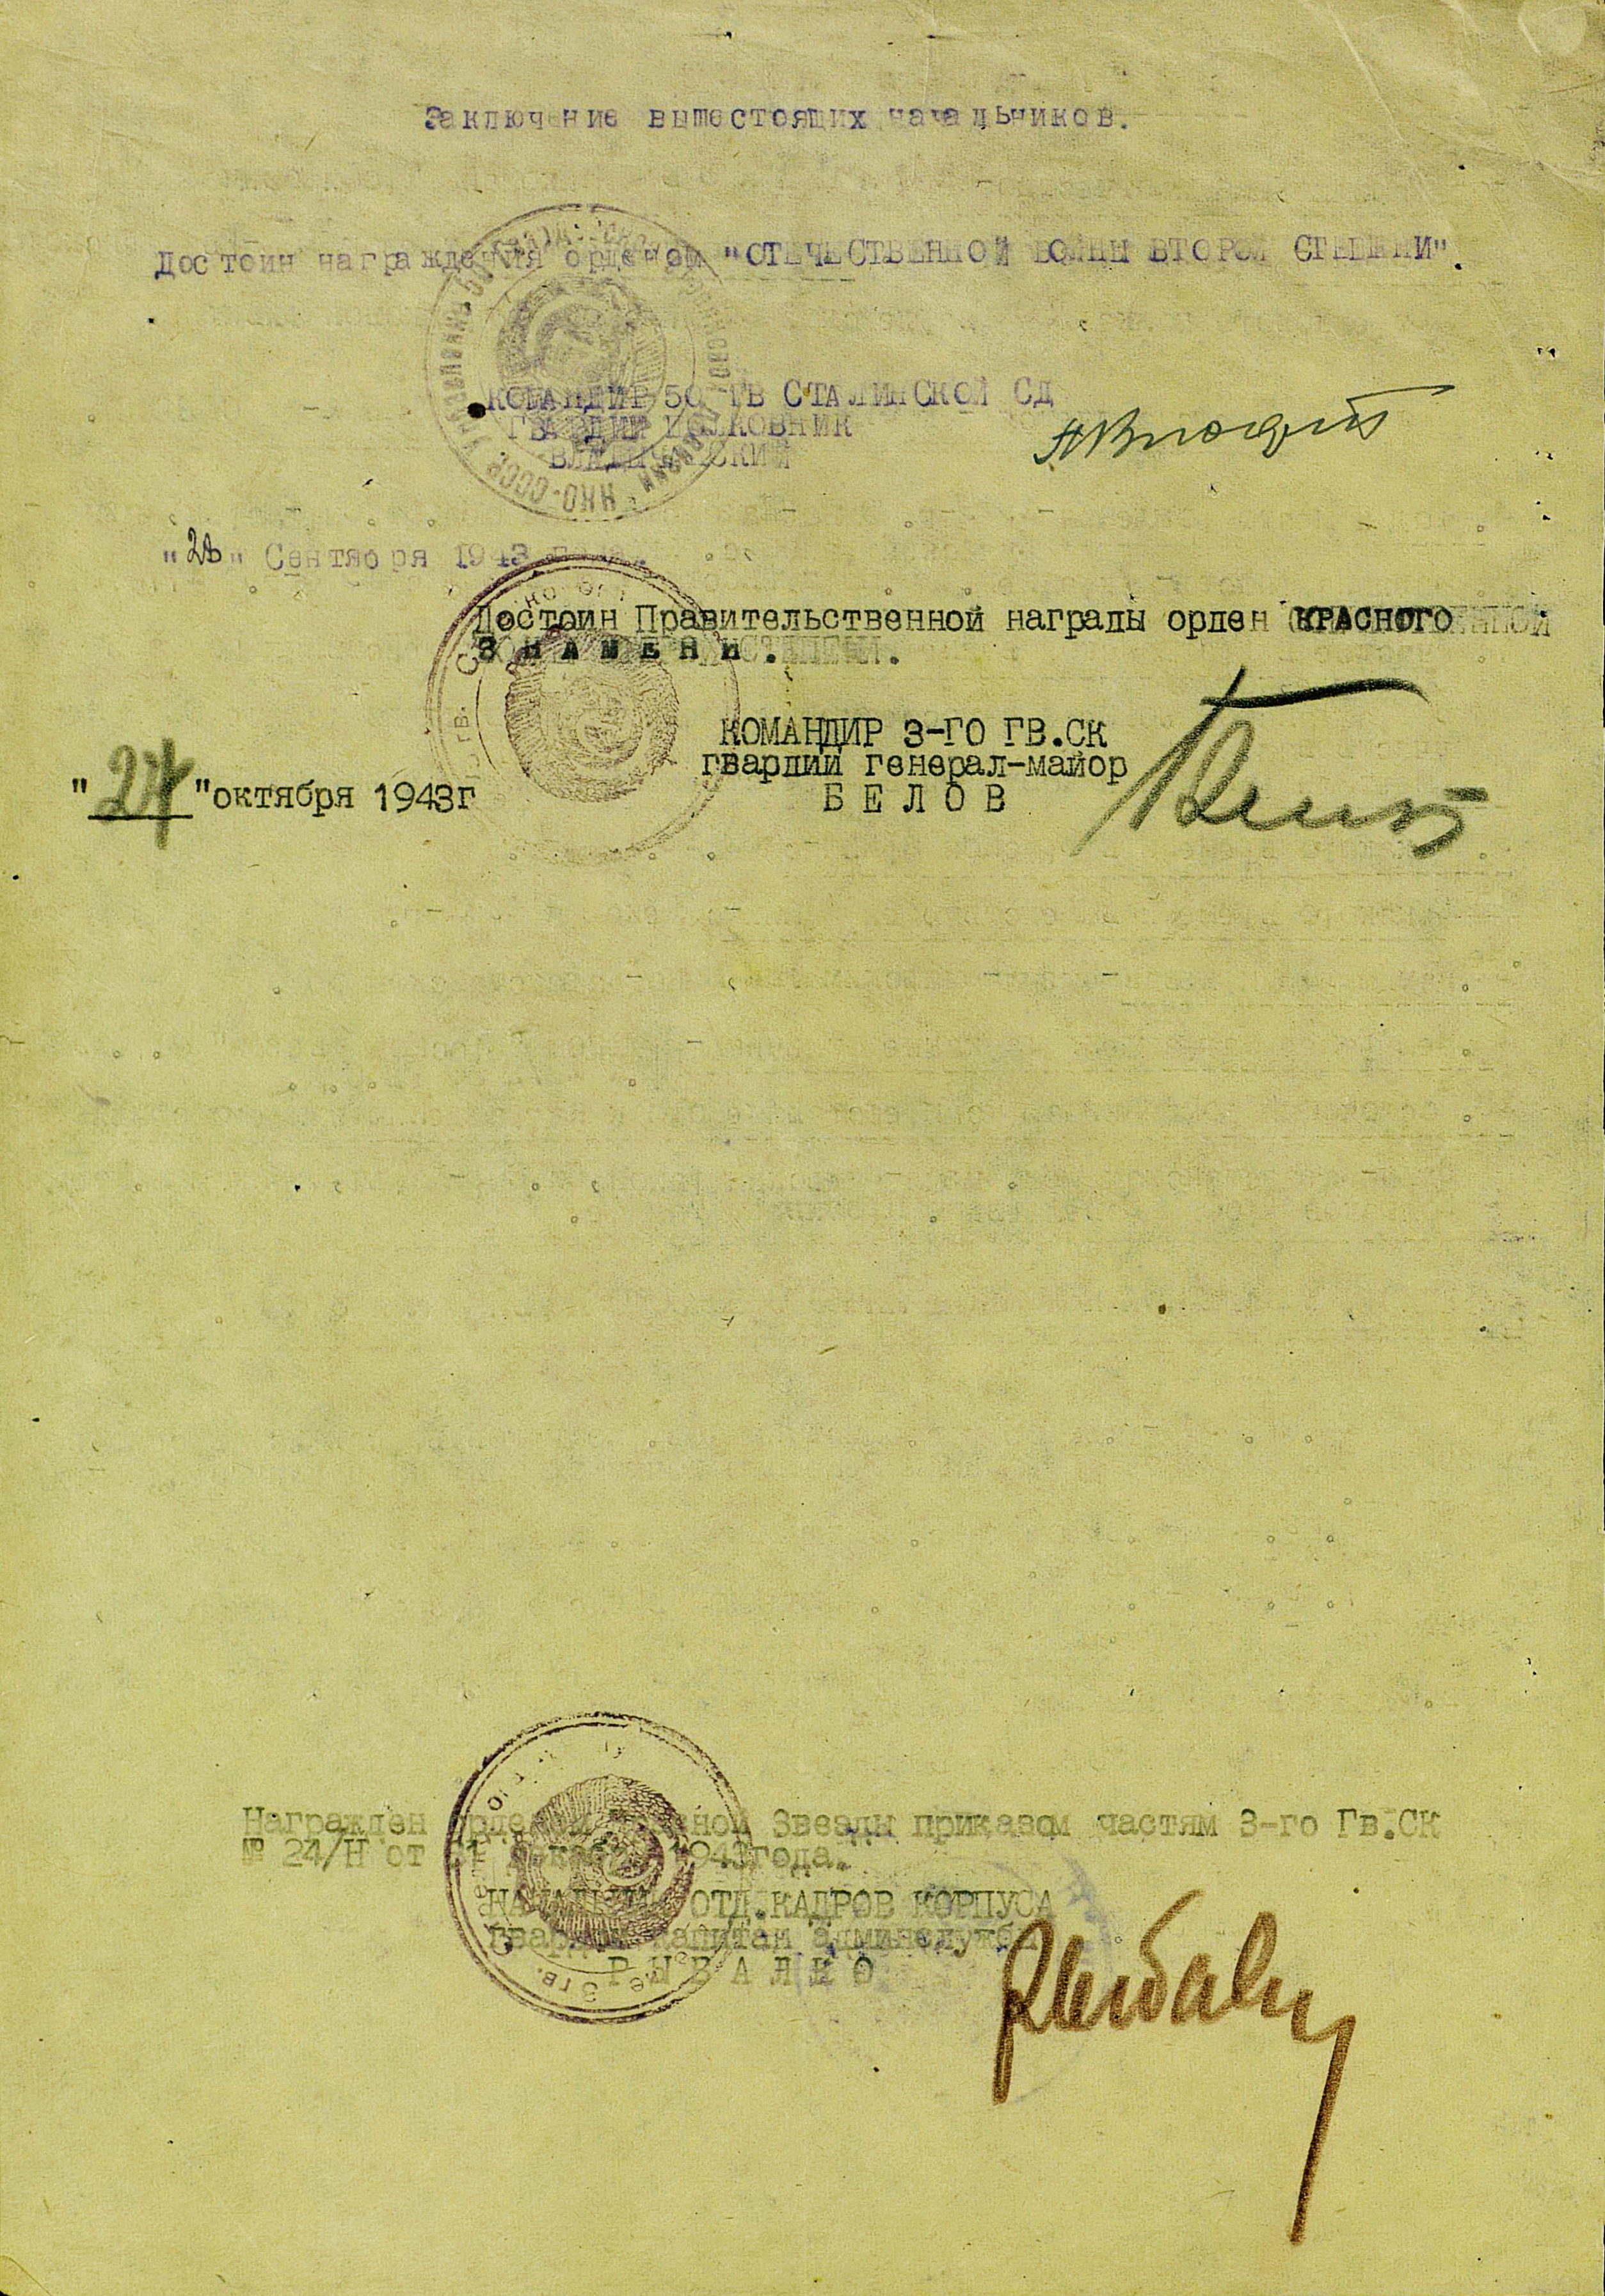 Заключение вышестоящих начальников.
Достоин награждения орденом "ОТЕЧЕСТВЕННОЙ ВОЙНЫ ВТОРОЙ СТЕПЕНИ".
КОМАНДИР 50 ГВ СТАЛИНСКОЙ СД
ГВАРДИИ ПОЛКОВНИК
ВЛАДЫЧАНСКИЙ
" " Сентября 1943
Достоин Правительственной награды орден КРАСНОГО
ЗНАМЕНИ.
КОМАНДИР 3-ГО ГВ.СК
гвардии генерал-майор
"24"октября 1943г
БЕЛОВ
Награжден орденом Красной Звезды приказом частям 3-го Гв.СК
№ 24/Н от 31 декабря 1943года.
НАЧАЛЬНИК ОТД.КАДРОВ КОРПУСА
гвардии капитан админслужбы
РЫБАЛКО